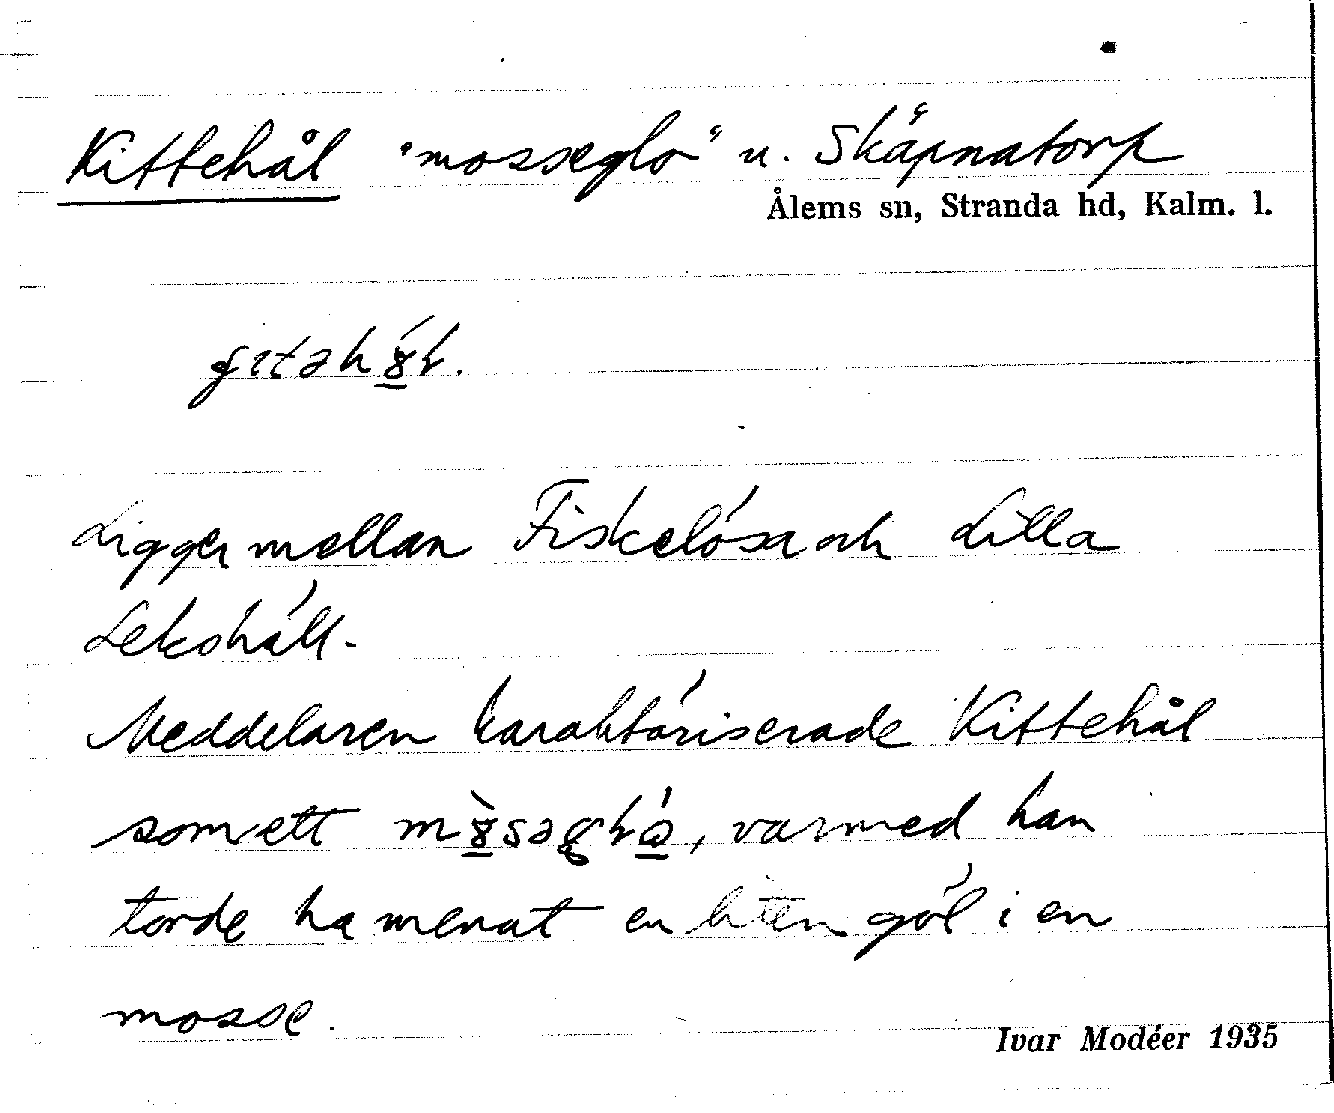 Kittehål "mosseglo" u. Skäpnatorp
Ålems sn, Stranda hd, Kalm. l.
Ligger mellan Fiskelösa och Lilla
Lekohäll.
Meddelaren karaktäriserade Kittehål
som ett , varmed han
torde ha menat en liten göl i en
mosse.
Ivar Modéer 1935